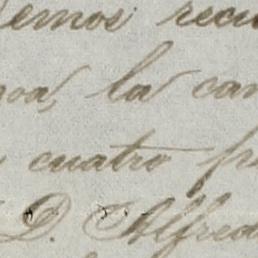 emos recu
noa, la can
cuatro p
D. Alfred